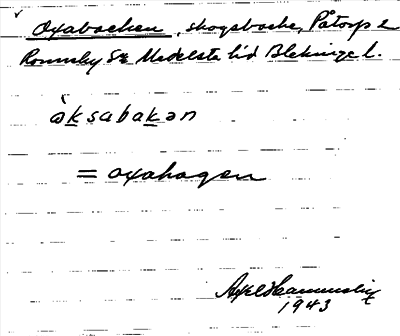 Oxabacken, skogsbacke, Påtorp 2
Ronneby Sn Medelsta hd Blekinge l.
àksabakən
= oxahagen
Axel Hammenstig
1943